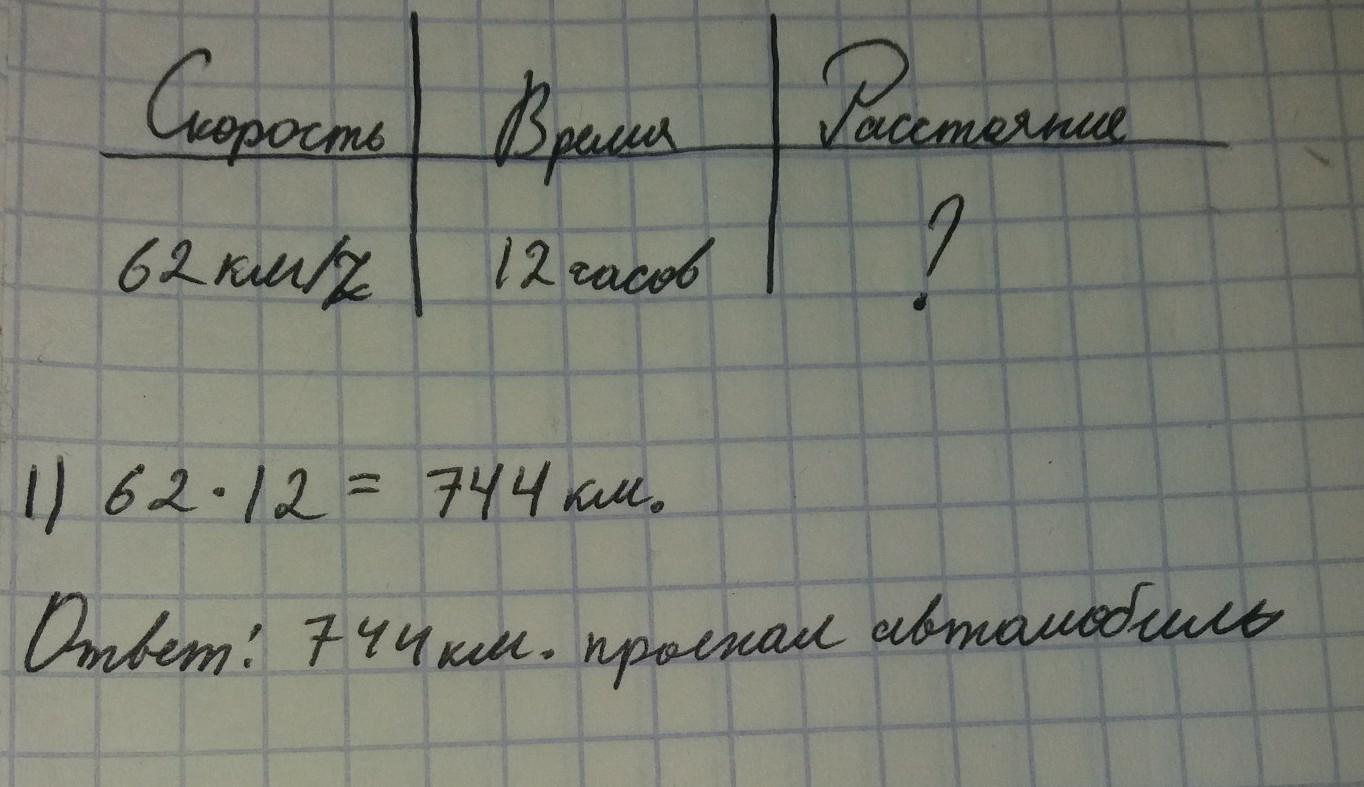 Скорость Время Расстояние
62 км/ч 12 часов ?
1) 62 · 12 = 744 км.
Ответ: 744 км. проехал автомобиль